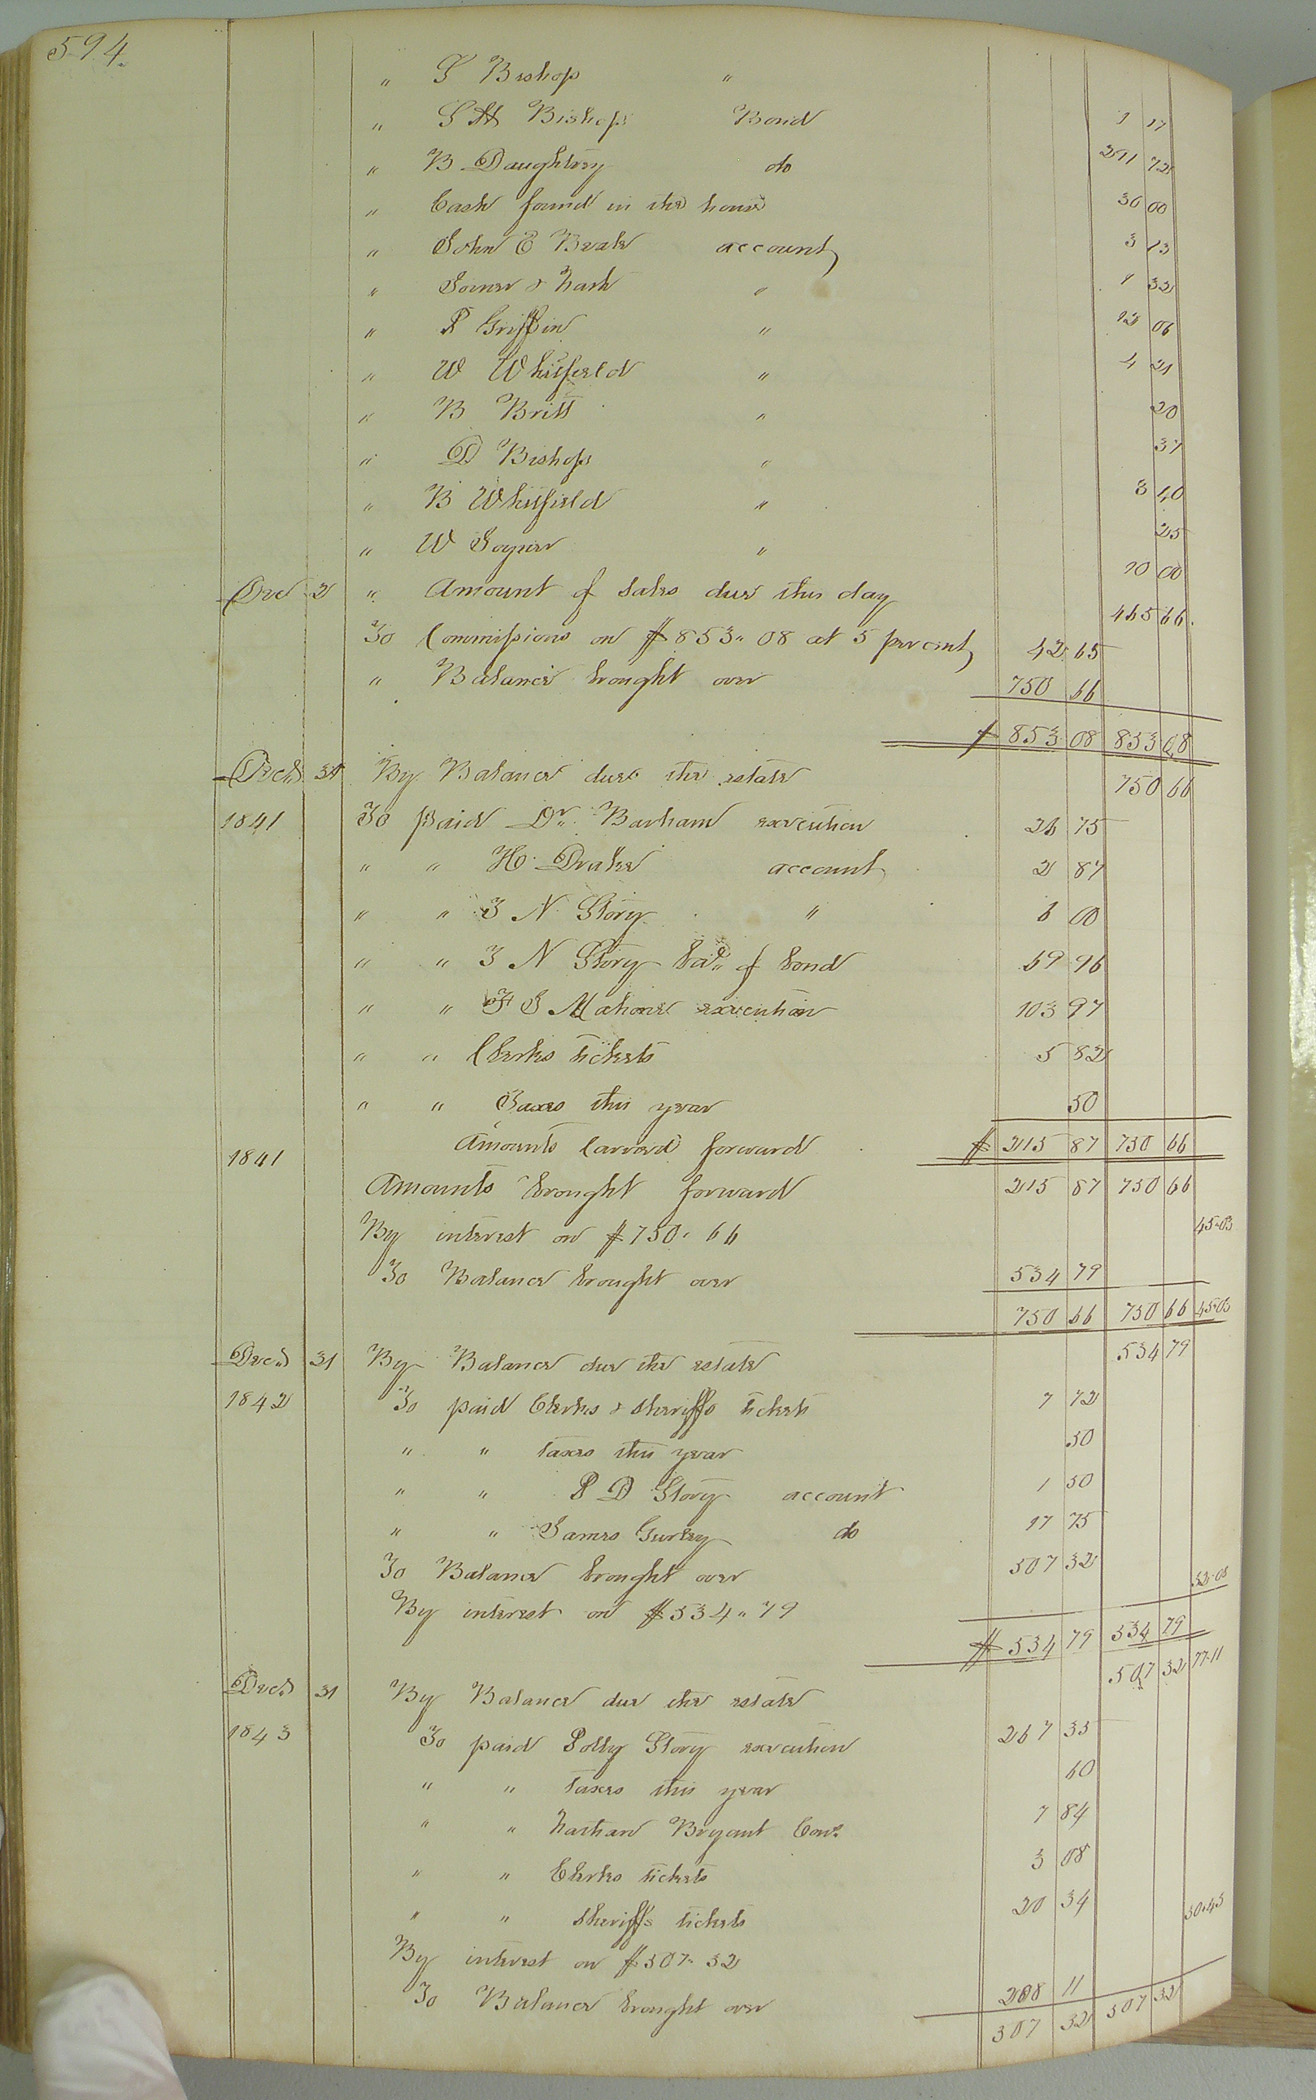 594.
" S Bishop "
" S H Bishops Bond 1 17
" B Daughtrey do 211 72
" Cash found in the house 30 00
" John E Beale account 3 13
" Joiner & Nash " 1 32
" P Griffin " 12 06
" W Whitfield " 4 21
" B Britt " 20
" D Bishop " 37
" B Whitfield " 8 40
" W Joyner " 25
10 00
Decr 2 " Amount of Sales due this day 465 66
To Commissions on $853.08 at 5 percent 42 65
" Balance brought over 750 66
$ 853 08 853 08
Decr 31 By Balance due the estate 750 66
1841 To paid Dr. Barham execution 26 75
" " H. Drake account 2 87
" " J N Story " 6 00
" " J N Story Bal. of bond 69 96
" " F J Mahone execution 103 97
" " Clerks tickets 5 82
" " Taxes this year 50
1841 Amounts Carred forward $ 215 87 750 66
Amounts brought forward 215 87 750 66
By interest on $750.66 45.03
To Balance brought over 534 79
750 66 750 66 45.03
Decr 31 By Balance due the estate 534 79
1842 To paid Clerks & Sheriffs tickets 7 72
" " Taxes this year 50
" " P D Story account 1 50
" " James Gurley do 17 75
To Balance brought over 507 32
By interest on $534.79 32.08
$ 534 79 534 79
Decr 31 By Balance due the estate 507 32 77.11
1843 To paid Polly Story execution 267 35
" " Taxes this year 60
" " Nathan Bryant 7 84
" " Clerks tickets 3 08
" " Sheriffs tickets 20 34
By interest on $507.32 30.43
To Balance brought over 208 11
507 32 507 32